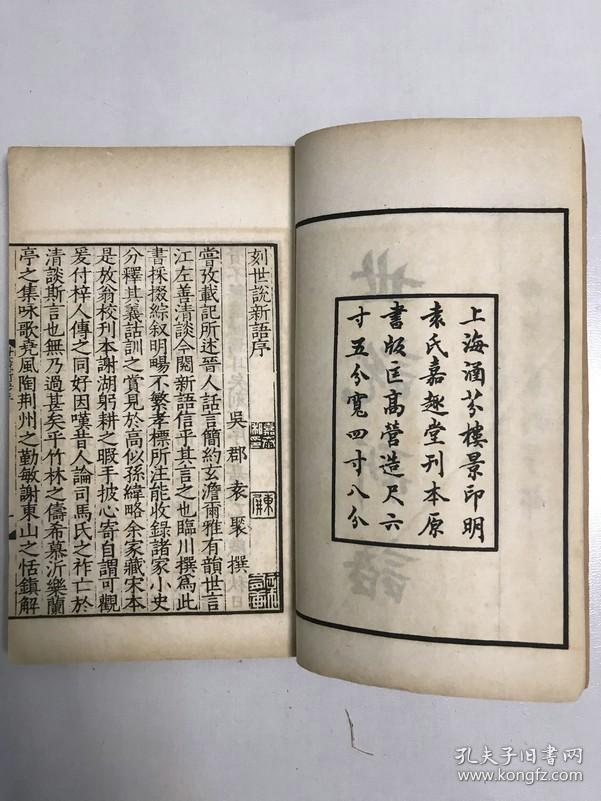 上海涵芬樓景印明
袁氏嘉趣堂刊本原
書版匡高營造尺六
寸五分寬四寸八分
刻世說新語序
吳郡袁褧撰
嘗攷載記所述晉人話言簡約玄澹爾雅有韻世言
江左善清談今閱新語信乎其言之也臨川撰爲此
書採掇綜叙明暢不繁孝標所注能收錄諸家小史
分釋其義詁訓之賞見於高似孫緯略余家藏宋本
是放翁校刊本謝湖躬耕之暇手披心寄自謂可觀
爰付梓人傳之同好因嘆昔人論司馬氏之祚亡於
清談斯言也無乃過甚矣乎竹林之儔希慕沂樂蘭
亭之集咏歌堯風陶荆州之勤敏謝東山之恬鎮解
孔夫子旧书网
www.kongfz.com